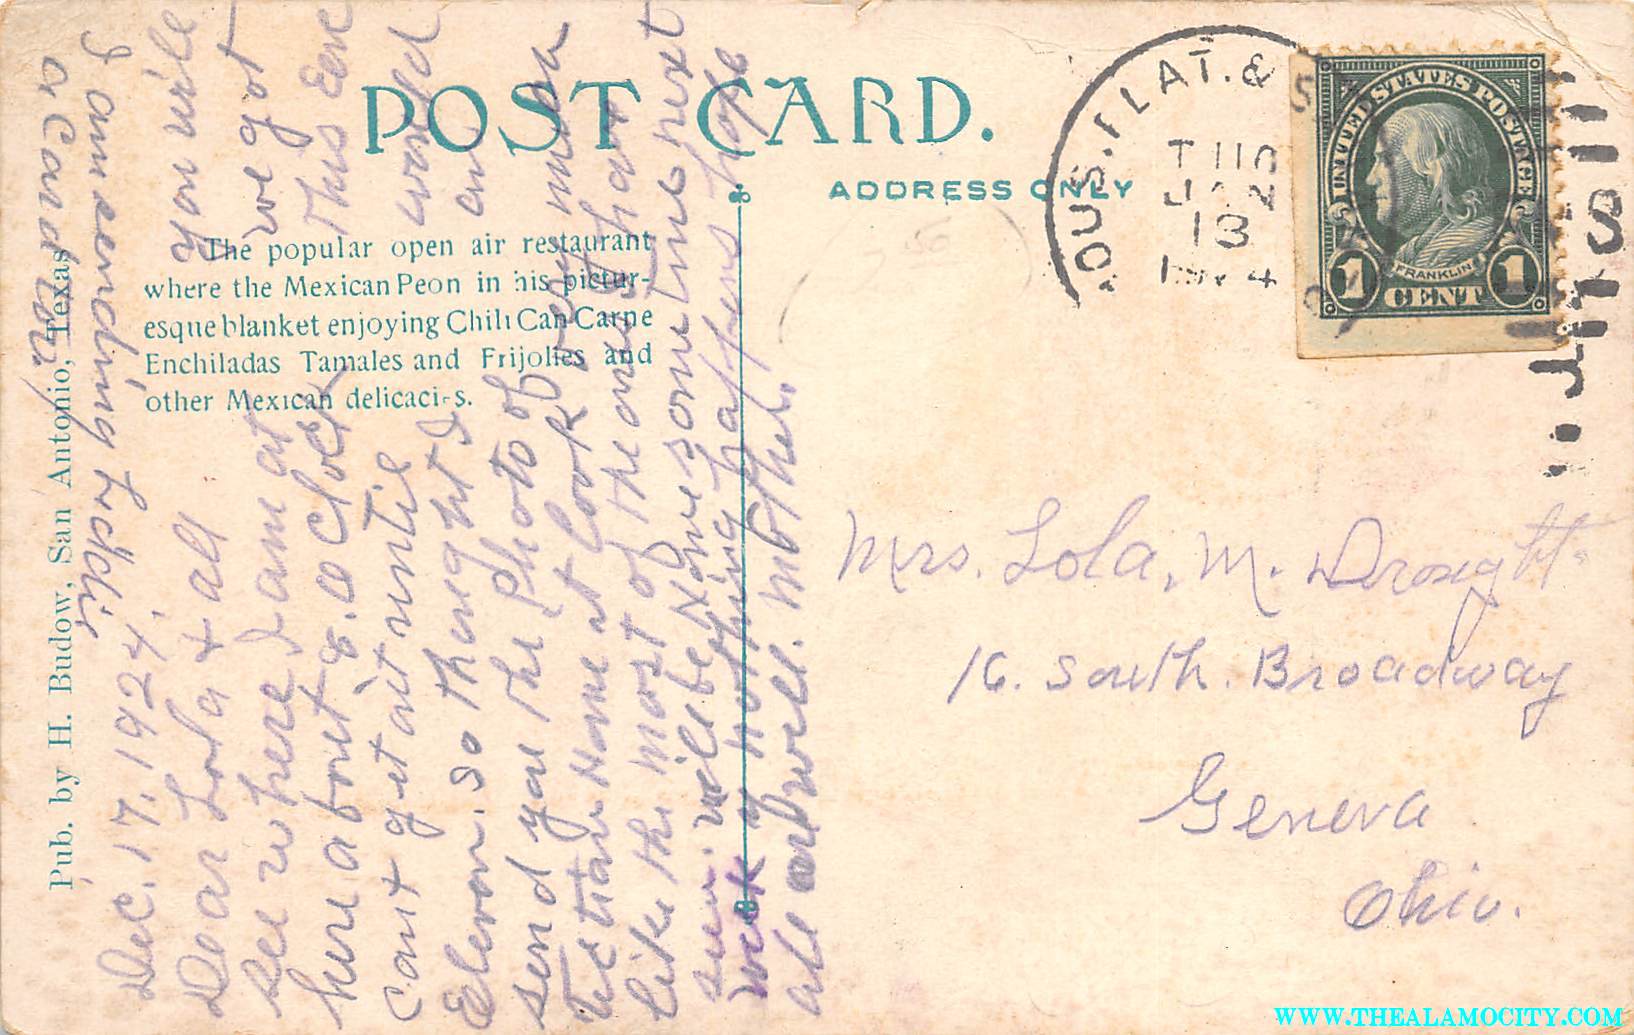 POST CARD.
ADDRESS ONLY
The popular open air restaurant
where the Mexican Peon in his pictur-
esque blanket enjoying Chili Can Carne
Enchiladas Tamales and Frijolies and
other Mexican delicacies.
Pub. by H. Budow, San Antonio, Texas
I am sending
a Card too.
Dec. 17. 1924.
Dear Lola & all you will
see where I am at we got
here about 8. o Clock This Eve
cant get out untie
Eleven. so thought I
send you the photo of an
Home it looks very much
like the most of the ones I have
seen. will be Home some time next
week if nothing happens hope
all are well. Mother.
HOUS. FLAT. & S
13
UNITED STATES POSTAGE
FRANKLIN
1 CENT 1
Mrs. Lola. M. Drought
16. South. Broadway
Geneva
Ohio.
WWW.THEALAMOCITY.COM